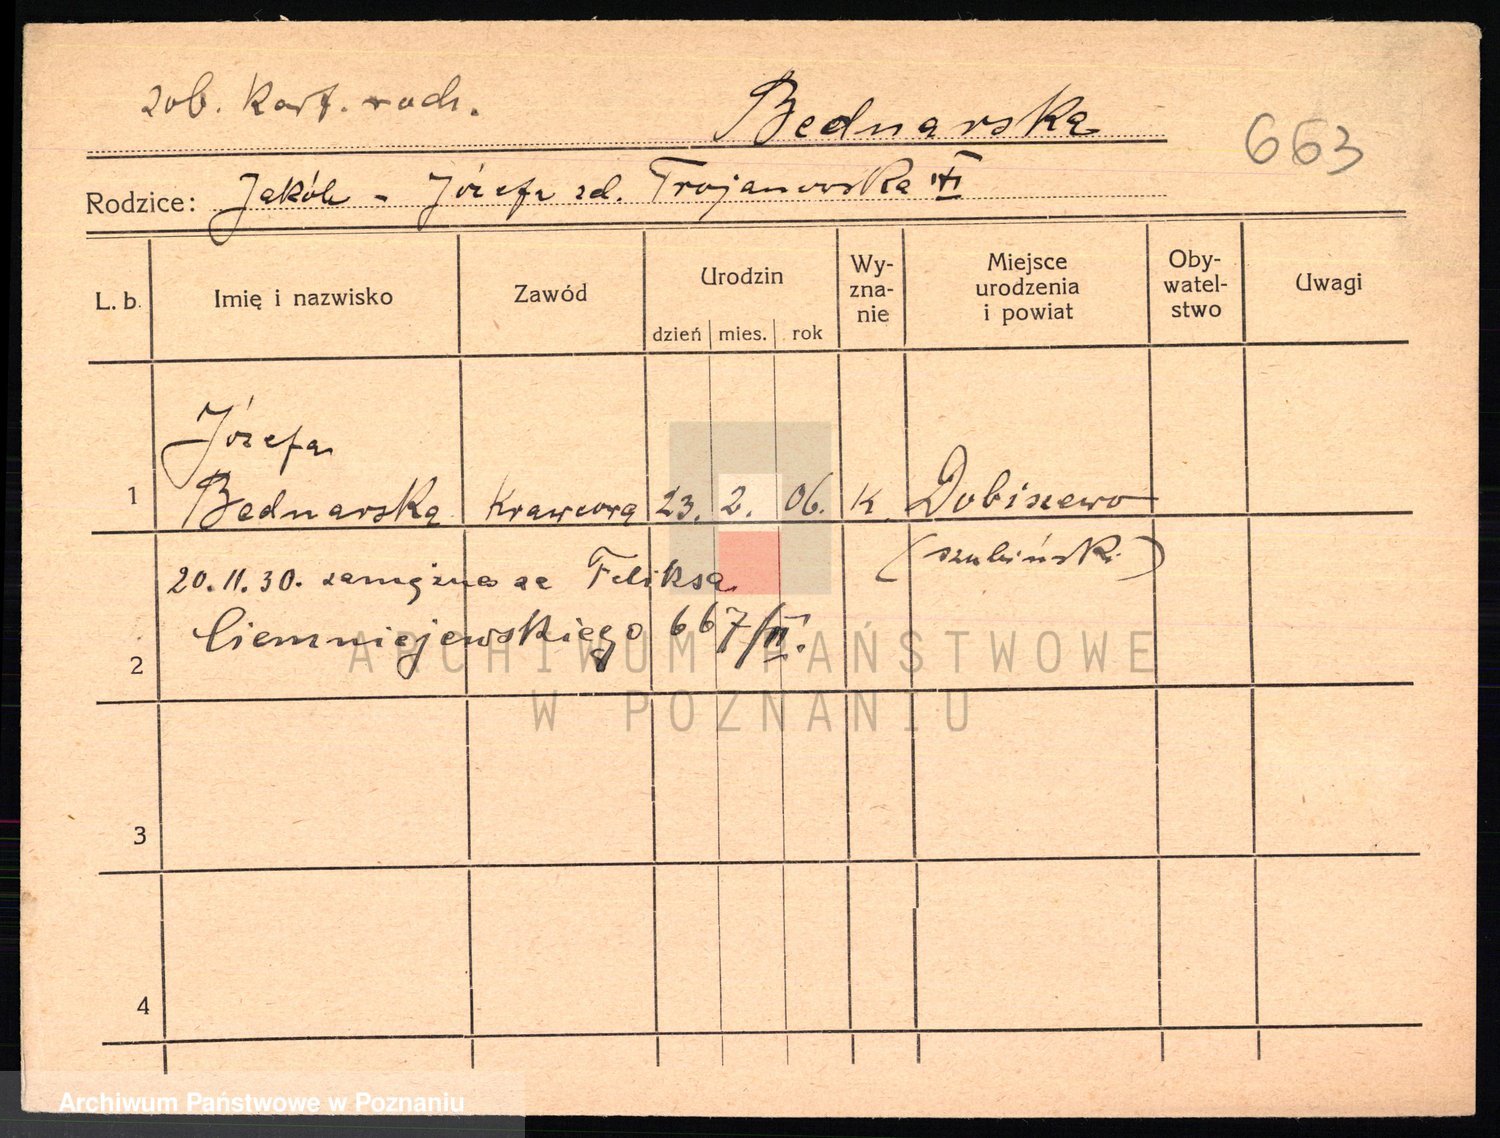 zob. Kart. rodz.
Bednarska
663
Rodzice: Jakób - Józefa zd. Trojanowska
L. b. Imię i nazwisko Zawód Urodzin dzień mies. rok Wyznanie Miejsce urodzenia i powiat Obywatelstwo Uwagi
Józefa
1 Bednarska Krawcowa 23. 2. 06. K Dobiszewo
(szubiński)
20.11.30. zamężna za Feliksa
Ciemniejewskiego 667/II.
2
ARCHIWUM PAŃSTWOWE
W POZNANIU
3
4
Archiwum Państwowe w Poznaniu